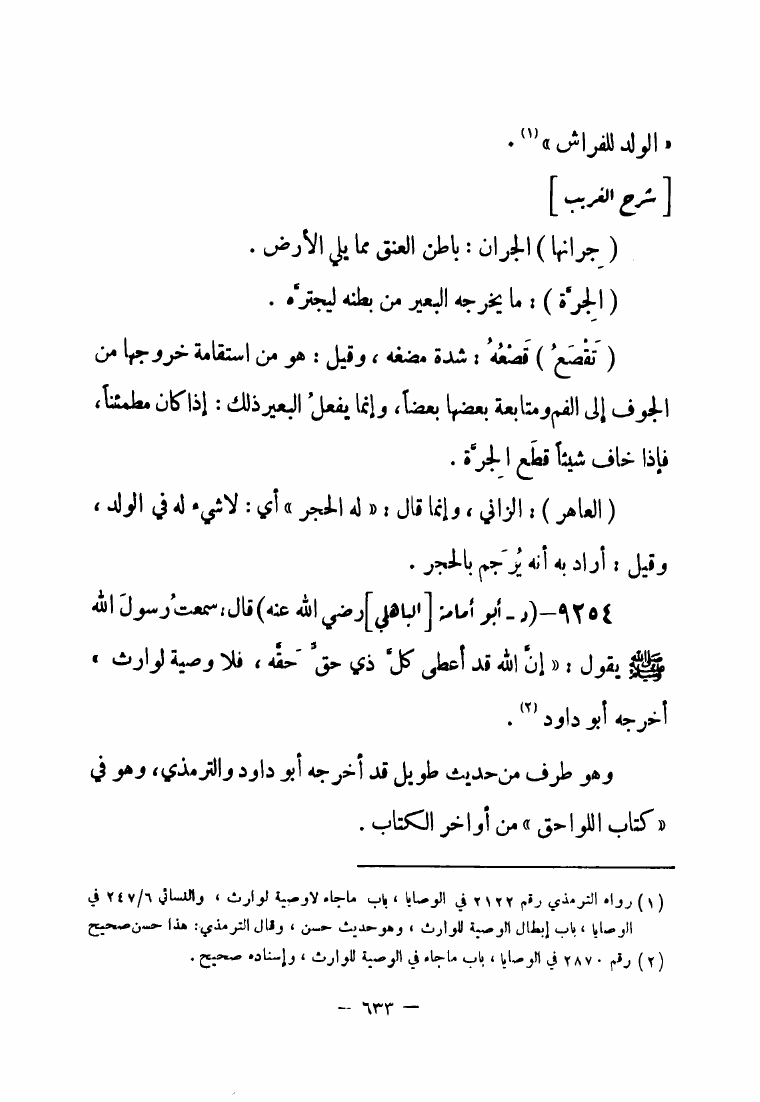 « الولد للفراش »(١) .
[ شرح الغريب ]
( جِرانها ) الجران : باطن العنق مما يلي الأرض .
( الجِرَّة ) : ما يخرجه البعير من بطنه ليجترَّه .
( تَقْصَعُ ) قَصْعُهُ : شدة مضغه ، وقيل : هو من استقامة خروجها من
الجوف إلى الفم ومتابعة بعضها بعضاً ، وإنما يفعلُ البعير ذلك : إذا كان مطمئناً ،
فإذا خاف شيئاً قطَع الجِرَّة .
( العاهر ) : الزاني ، وإنما قال : « له الحجر » أي : لاشيء له في الولد ،
وقيل : أراد به أنه يُرْجَم بالحجر .
٩٢٥٤ – (د ـ أبو أمامة [ الباهلي ] رضي الله عنه) قال : سمعتُ رسولَ الله
ﷺ يقول : « إنَّ الله قد أعطى كلَّ ذي حقٍّ حَقَّه ، فلا وصية لوارث »
أخرجه أبو داود (٢) .
وهو طرف من حديث طويل قد أخرجه أبو داود والترمذي ، وهو في
« كتاب اللواحق » من أواخر الكتاب .
(١) رواه الترمذي رقم ٢١٢٢ في الوصايا ، باب ماجاء لاوصية لوارث ، والنسائي ٢٤٧/٦ في
الوصايا ، باب إبطال الوصية للوارث ، وهو حديث حسن ، وقال الترمذي : هذا حسن صحيح
(٢) رقم ٢٨٧٠ في الوصايا ، باب ماجاء في الوصية للوارث ، وإسناده صحيح .
— ٦٣٣ —